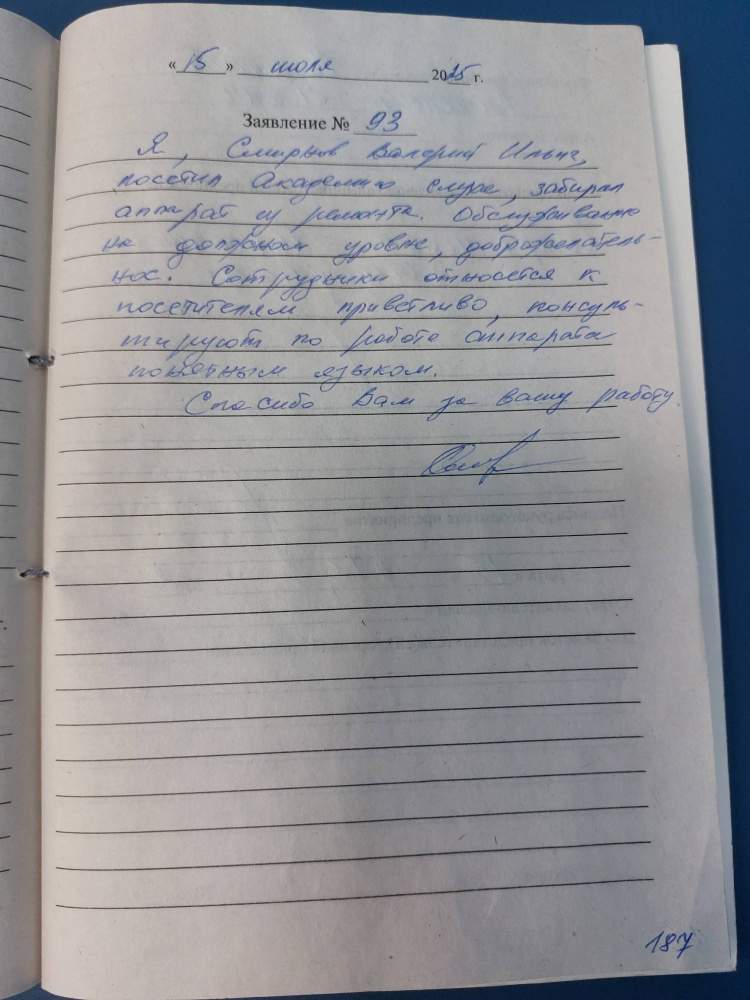 « 15 » июля 2025 г.
Заявление № 93
Я, Смирнов Валерий Ильич,
посетил Академию слуха, забирал
аппарат из ремонта. Обслуживание
на должном уровне, доброжелатель-
ное. Сотрудники относятся к
посетителям приветливо, консуль-
тируют по работе аппарата
понятным языком.
Спасибо Вам за вашу работу.
187